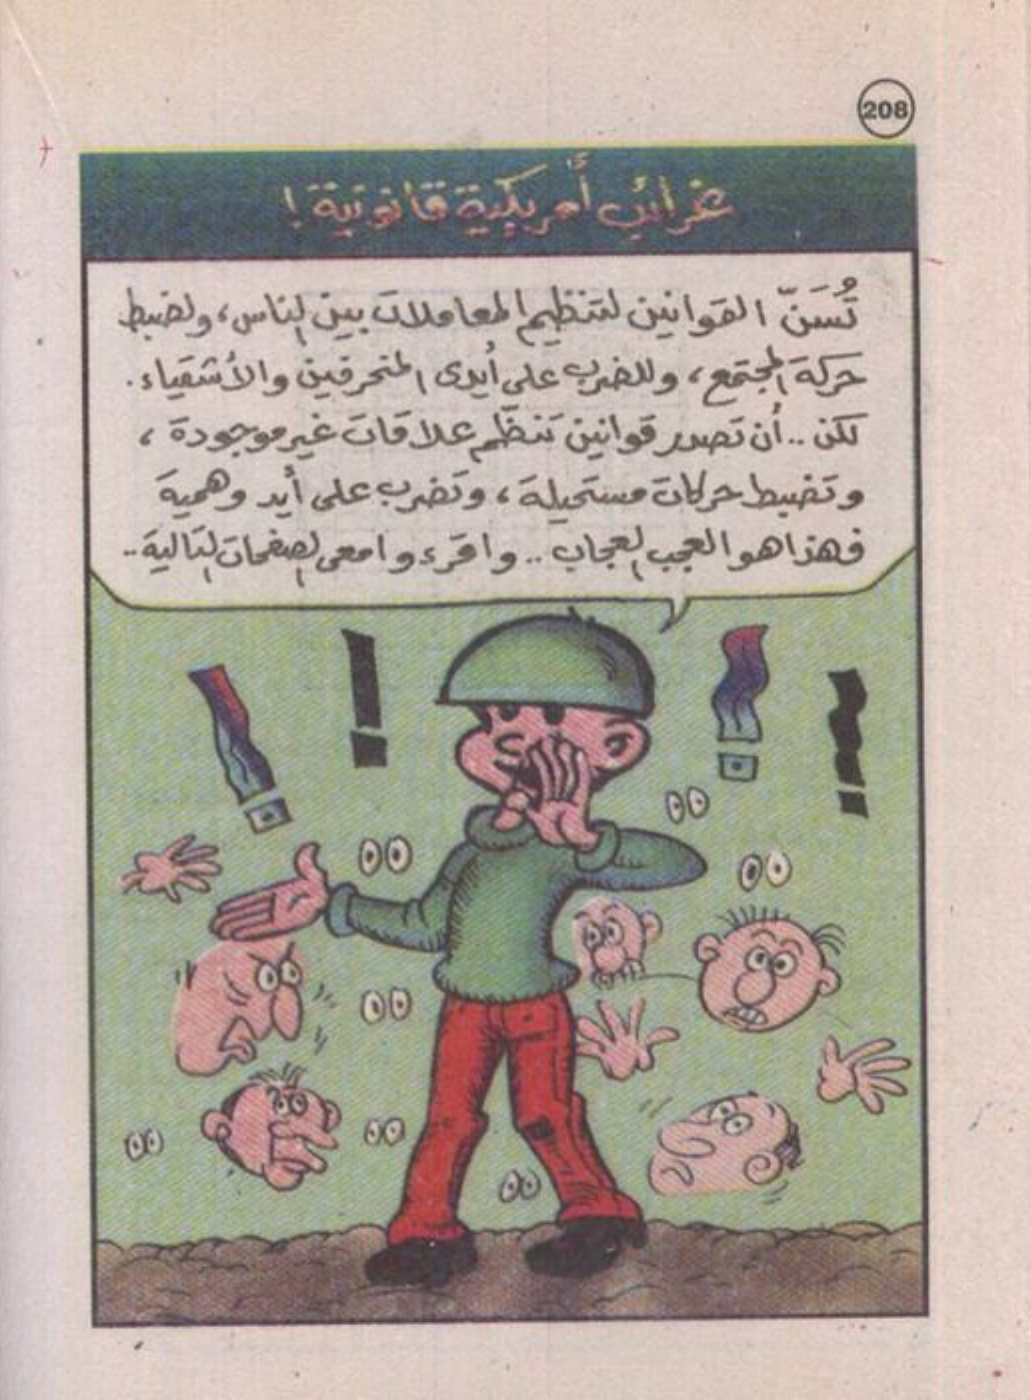 208
غرائب أمريكية قانونية !
تُسَنّ القوانين لتنظيم المعاملات بين الناس، ولضبط
حركة المجتمع، وللضرب على أيدى المنحرفين والأشقياء.
لكن .. أن تصدر قوانين تنظّم علاقات غير موجودة ،
وتضبط حركات مستحيلة ، وتضرب على أيد وهمية
فهذا هو العجب العجاب .. واقرءوا معى الصفحات التالية ..